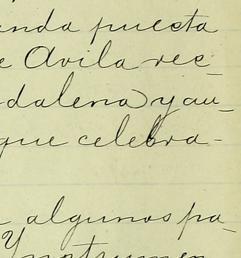 enda puesta
e Avila rec-
dalena) y au-
que celebra-
algunos pa-
Y